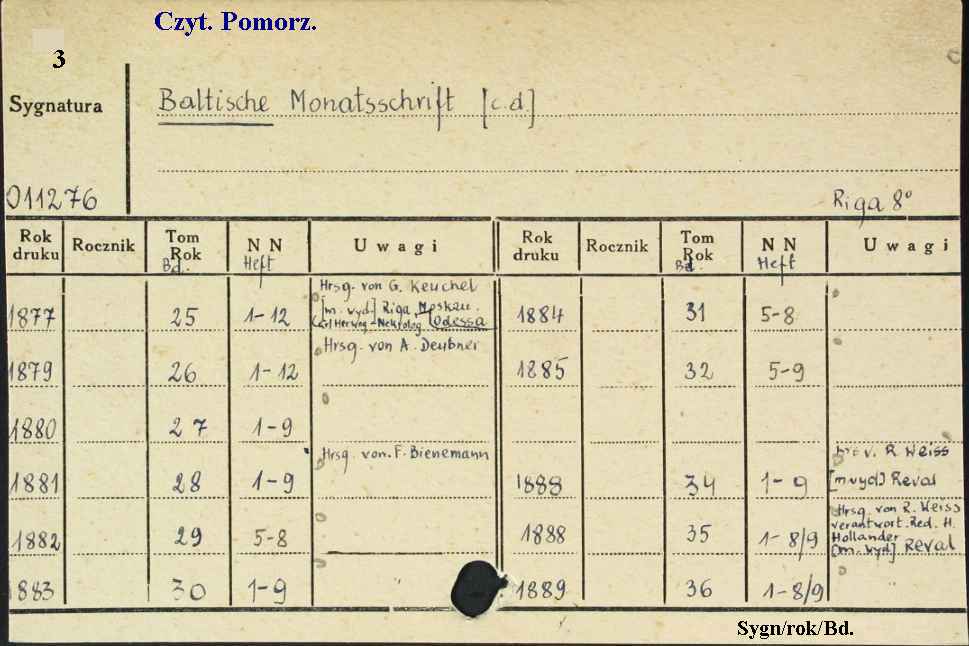 Czyt. Pomorz.
3
Sygnatura
Baltische Monatsschrift [c.d.]
011276
Riga 8°
Rok druku Rocznik Tom Rok Bd. NN Heft Uwagi Rok druku Rocznik Tom Rok Bd. NN Heft Uwagi
Hrsg. von G. Keuchel
[m. wyd.] Riga, Moskau.
Odessa
1877 25 1-12 1884 31 5-8
Hrsg. von A. Deubner
1879 26 1-12 1885 32 5-9
1880 27 1-9
Hrsg. von. F. Bienemann
R. Weiss
1881 28 1-9 1888 34 1-9 [m wyd] Reval
Hrsg. von R. Weiss
verantwort. Red. H.
Hollander
[m. wyd] Reval
1882 29 5-8 1888 35 1-8/9
1883 30 1-9 1889 36 1-8/9
Sygn/rok/Bd.